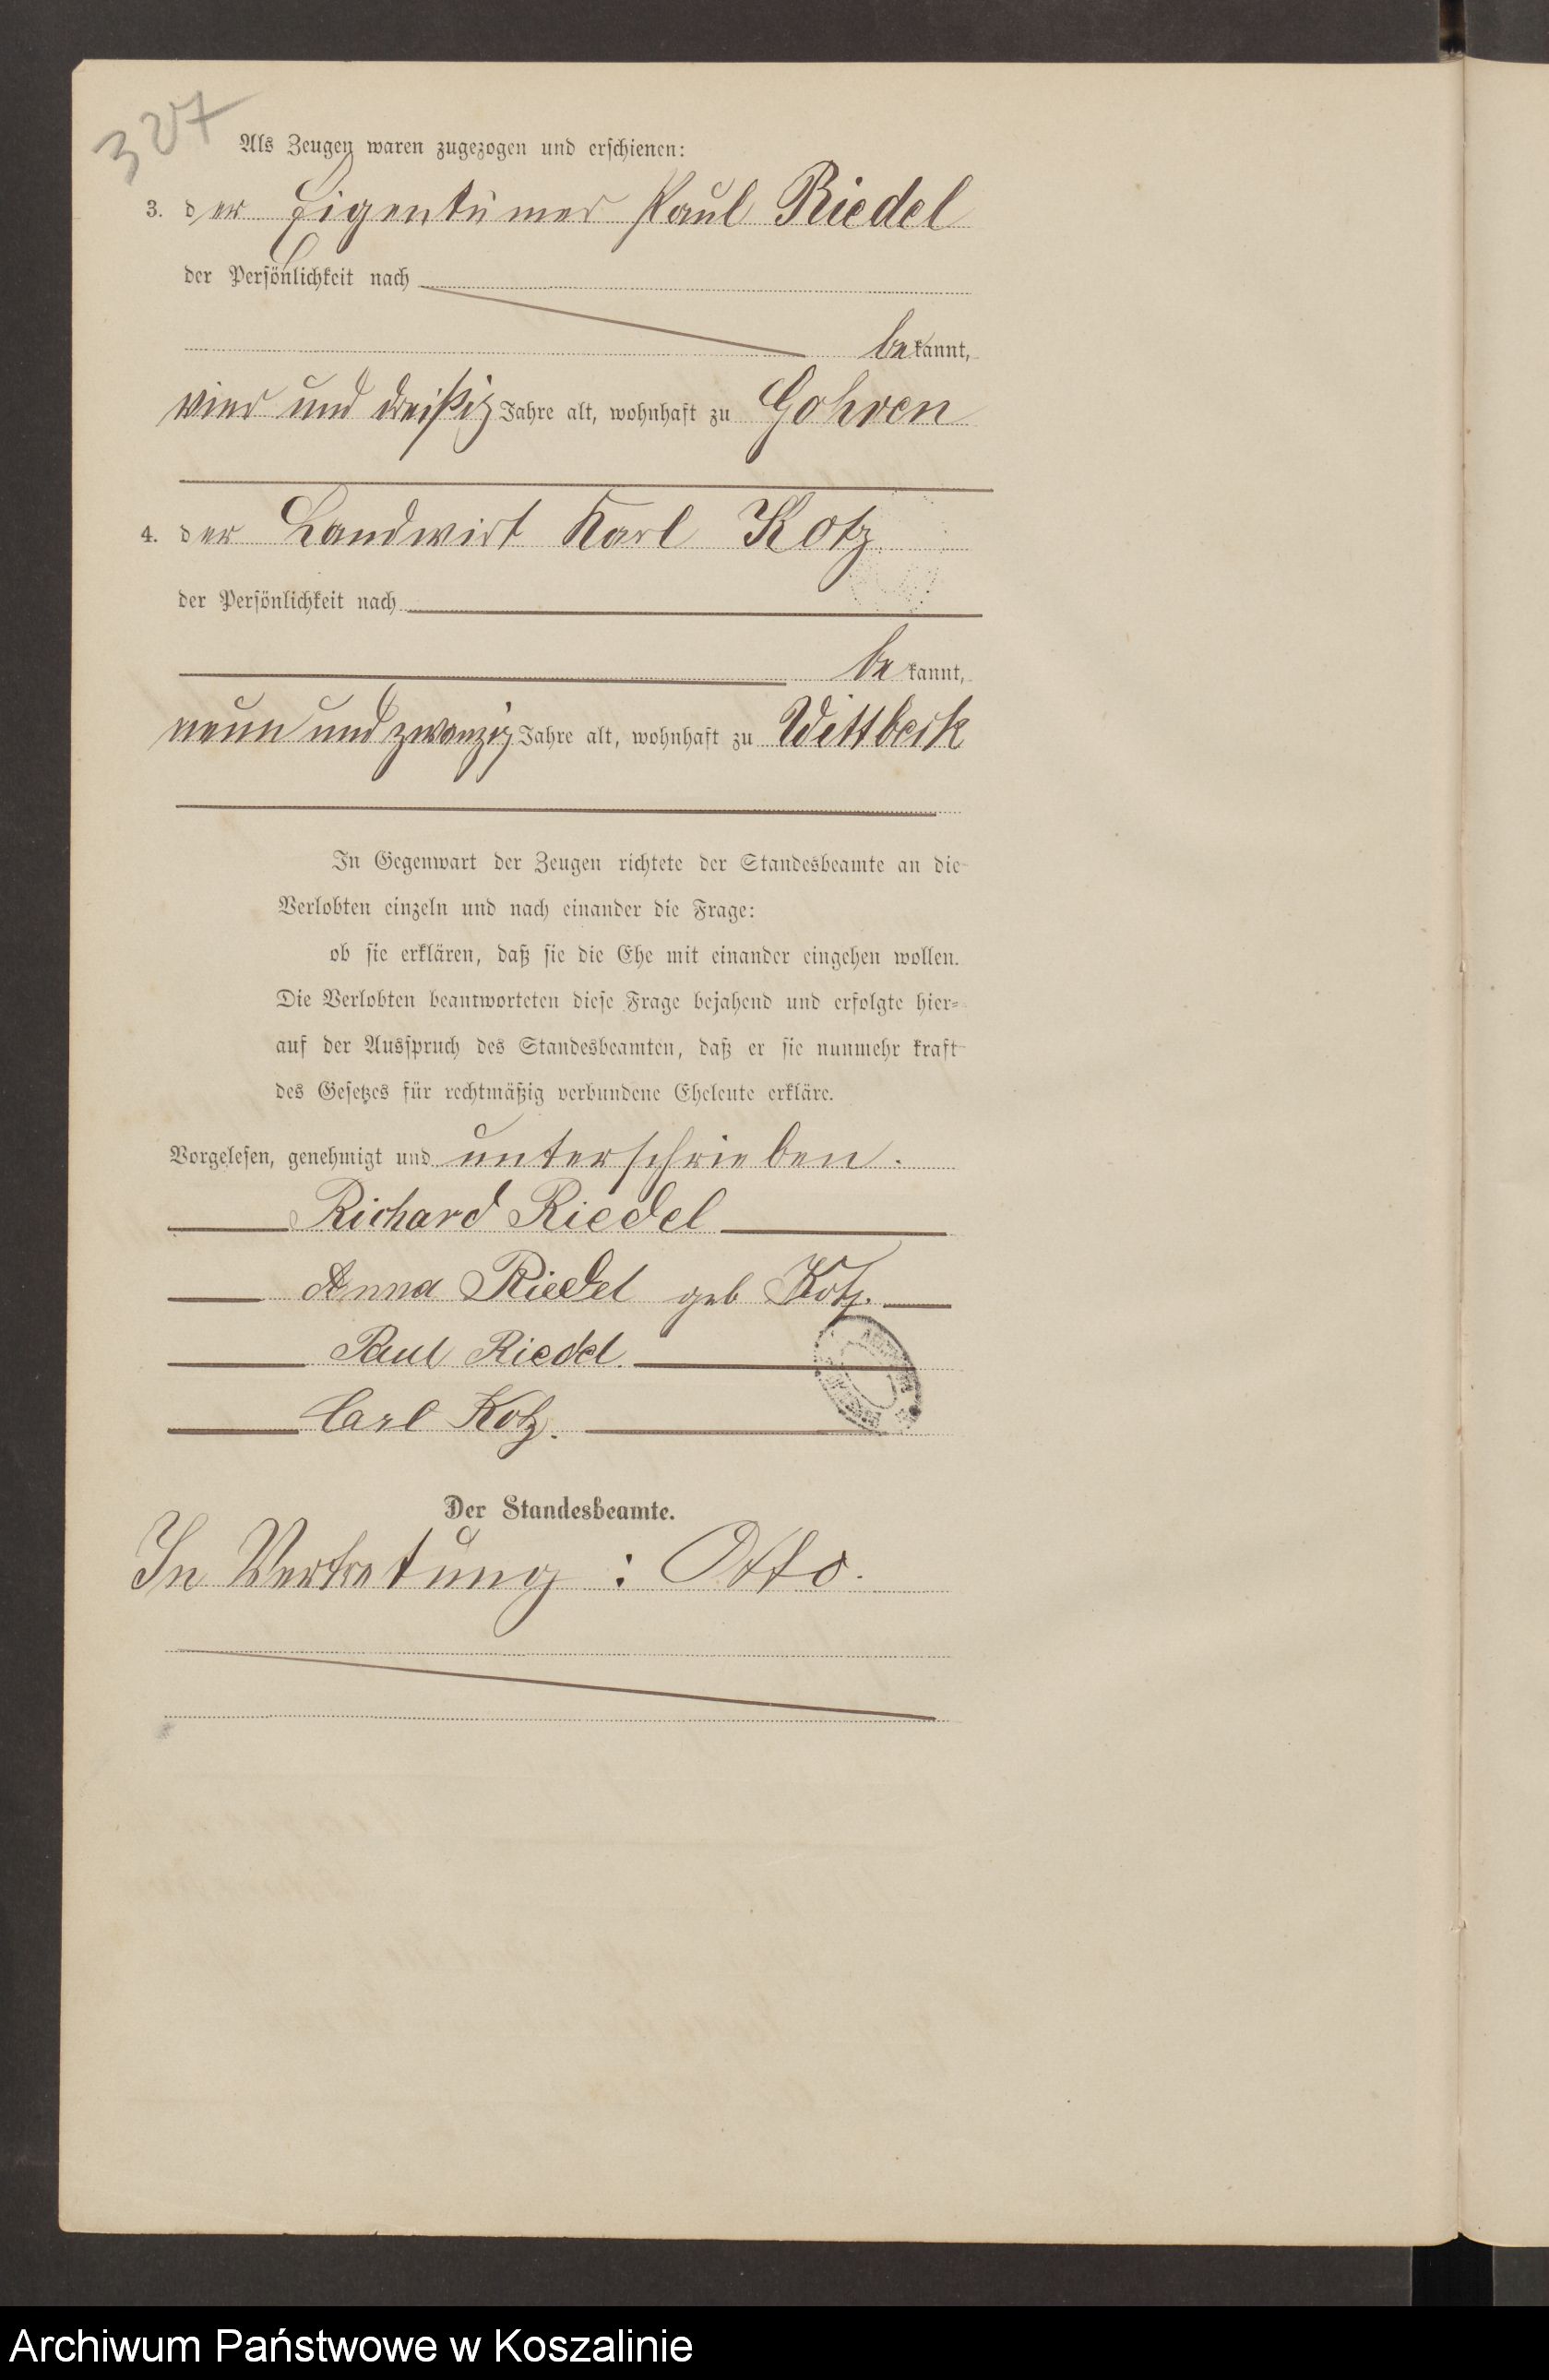 327
Als Zeugen waren zugezogen und erschienen:
3. der Eigentümer Paul Riedel
der Persönlichkeit nach
bekannt,
vier und dreißig Jahre alt, wohnhaft zu Gohren
4. der Landwirt Karl Kotz
der Persönlichkeit nach
bekannt,
neun und zwanzig Jahre alt, wohnhaft zu Wittbeck
In Gegenwart der Zeugen richtete der Standesbeamte an die
Verlobten einzeln und nach einander die Frage:
ob sie erklären, daß sie die Ehe mit einander eingehen wollen.
Die Verlobten beantworteten diese Frage bejahend und erfolgte hier-
auf der Ausspruch des Standesbeamten, daß er sie nunmehr kraft
des Gesetzes für rechtmäßig verbundene Eheleute erkläre.
Vorgelesen, genehmigt und unterschrieben.
Richard Riedel
Anna Riedel geb Kotz.
Paul Riedel.
Carl Kotz.
Der Standesbeamte.
In Vertretung: Otto.
Archiwum Państwowe w Koszalinie